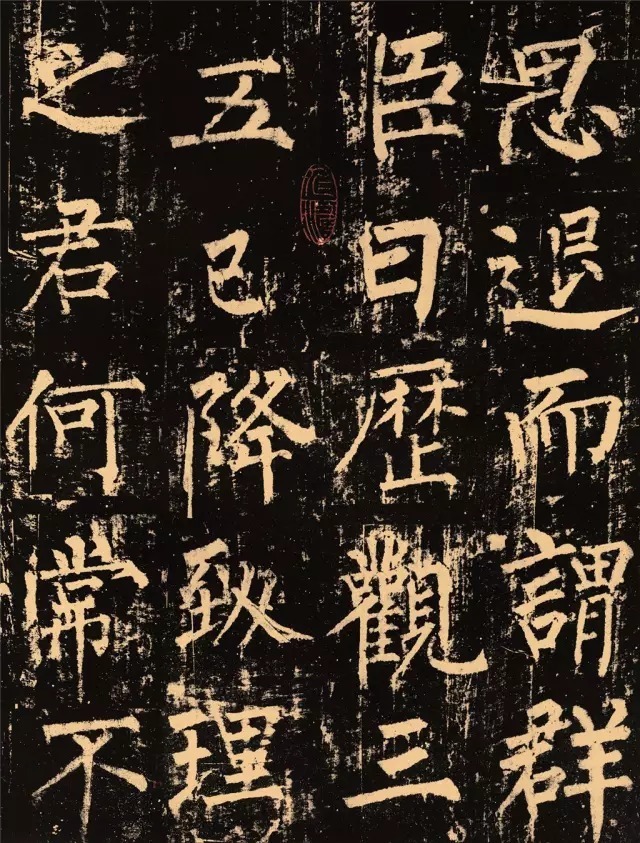 思退而謂群
臣曰歷觀三
五已降致理
之君何常不